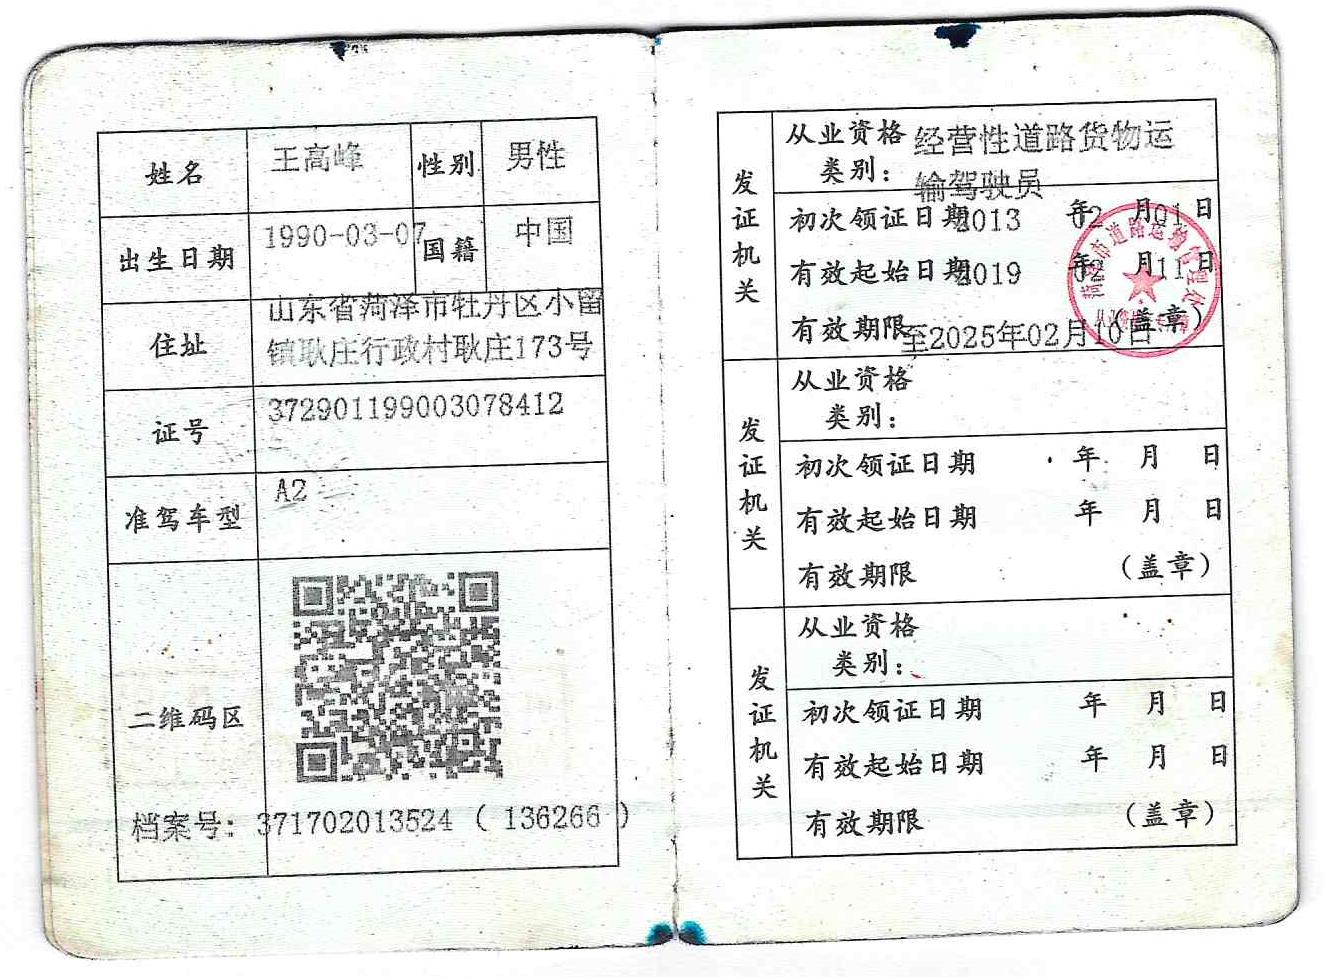 姓名 王高峰 性别 男性
出生日期 1990-03-07 国籍 中国
住址 山东省菏泽市牡丹区小留
镇耿庄行政村耿庄173号
证号 372901199003078412
准驾车型 A2
二维码区
档案号：371702013524 ( 136266 )
发证机关
从业资格类别： 经营性道路货物运
输驾驶员
初次领证日期 2013 年 02 月 01 日
有效起始日期 2019 年 02 月 11 日
有效期限 至2025年02月10日 （盖章）
发证机关
从业资格
类别：
初次领证日期 年 月 日
有效起始日期 年 月 日
有效期限 （盖章）
发证机关
从业资格
类别：
初次领证日期 年 月 日
有效起始日期 年 月 日
有效期限 （盖章）